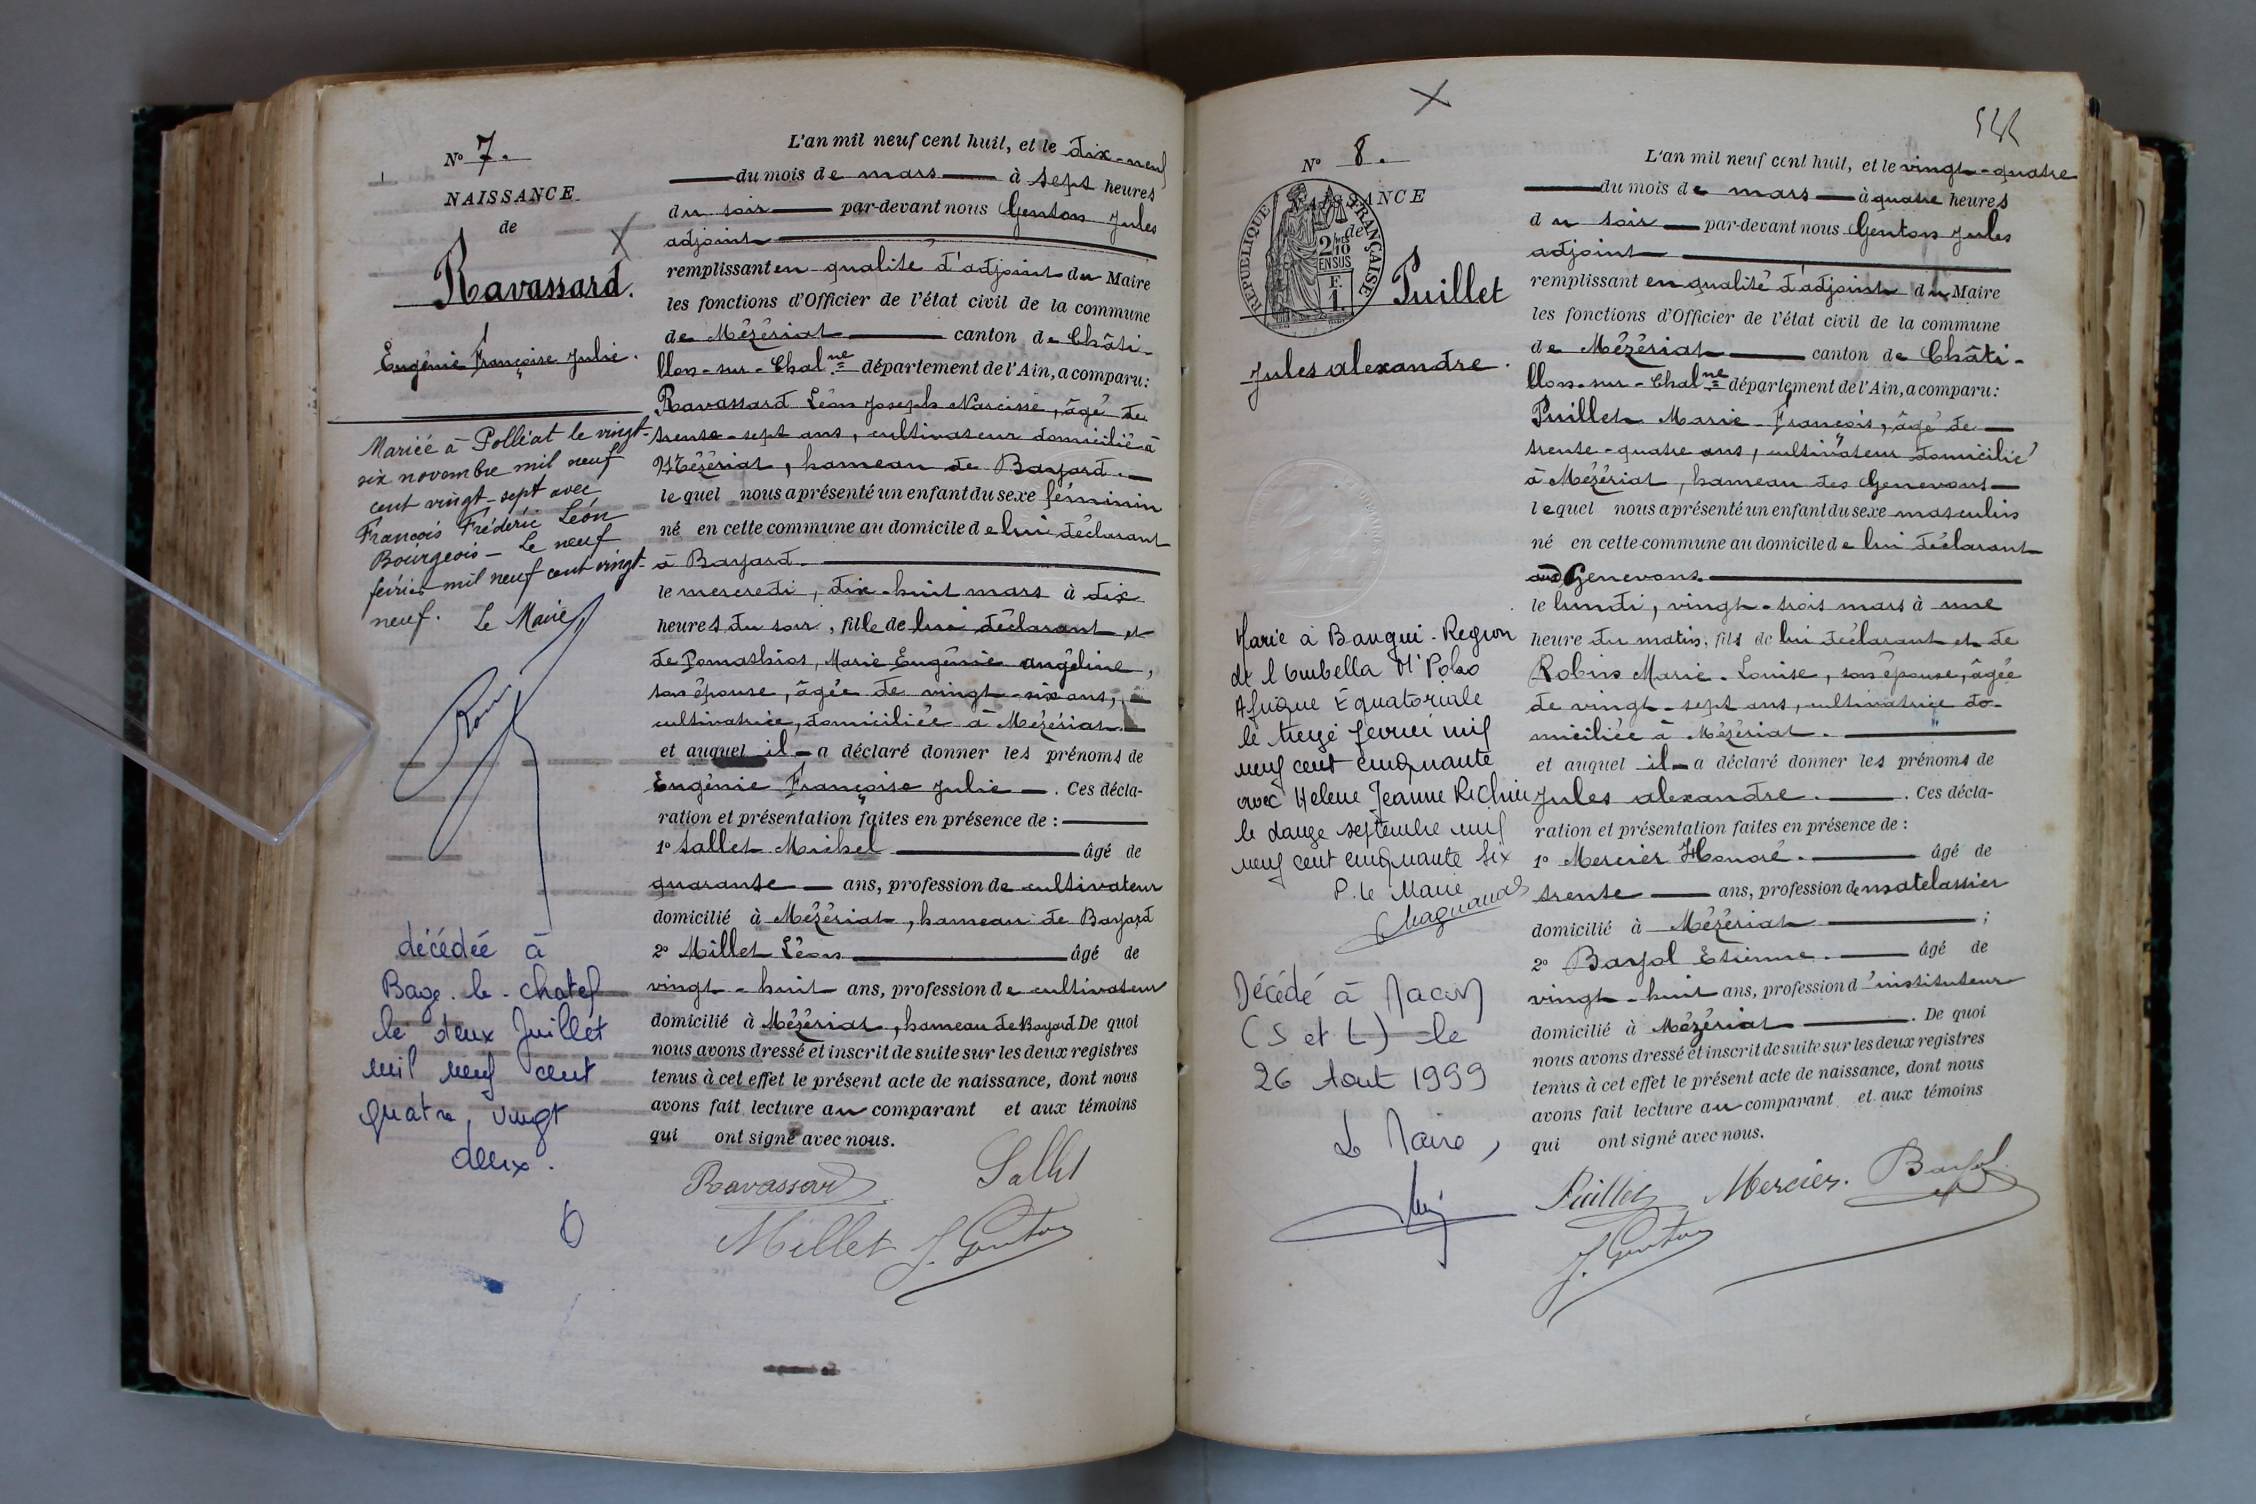 N° 7.
NAISSANCE
de
Ravassard.
Eugénie Françoise Julie.
Mariée à Polliat le vingt-
six novembre mil neuf
cent vingt-sept avec
François Frédéric Léon
Bourgeois — Le neuf
février mil neuf cent vingt-
neuf. Le Maire
décédée à
Bage-le-Chatel
le deux Juillet
mil neuf cent
quatre vingt
deux.
L'an mil neuf cent huit, et le dix-neuf
du mois de mars à sept heures
du soir par-devant nous Genton Jules
adjoint
remplissant en qualité d'adjoint du Maire
les fonctions d'Officier de l'état civil de la commune
de Mézériat canton de Châti-
llon-sur-Chalne département de l'Ain, a comparu:
Ravassard Léon Joseph Narcisse, âgé de
trente-sept ans, cultivateur domicilié à
Mézériat, hameau de Bayard.
lequel nous a présenté un enfant du sexe féminin
né en cette commune au domicile de lui déclarant
à Bayard.
le mercredi, dix-huit mars à dix
heures du soir, fille de lui déclarant et
de Pomathios, Marie Eugénie Angéline,
son épouse, âgée de vingt-six ans,
cultivatrice, domiciliée à Mézériat.
et auquel il a déclaré donner les prénoms de
Eugénie Françoise Julie. Ces décla-
ration et présentation faites en présence de :
1° Sallet Michel âgé de
quarante ans, profession de cultivateur
domicilié à Mézériat, hameau de Bayard
2° Millet Léon âgé de
vingt-huit ans, profession de cultivateur
domicilié à Mézériat, hameau de Bayard De quoi
nous avons dressé et inscrit de suite sur les deux registres
tenus à cet effet le présent acte de naissance, dont nous
avons fait lecture au comparant et aux témoins
qui ont signé avec nous.
Ravassard Sallet
Millet J. Genton
N° 8.
NAISSANCE
de
RÉPUBLIQUE FRANÇAISE
2/10 EN SUS
F. 1
Puillet
Jules Alexandre.
Marié à Bangui - Région
de l'Ombella M'Poko
Afrique Équatoriale
le treize février mil
neuf cent cinquante
avec Helene Jeanne
le douze septembre mil
neuf cent cinquante six
P. le Maire
Décédé à Macon
(S et L) le
26 Aout 1999
Le Maire,
L'an mil neuf cent huit, et le vingt-quatre
du mois de mars à quatre heures
du soir par-devant nous Genton Jules
adjoint
remplissant en qualité d'adjoint du Maire
les fonctions d'Officier de l'état civil de la commune
de Mézériat canton de Châti-
llon-sur-Chalne département de l'Ain, a comparu:
Puillet Marie François, âgé de
trente-quatre ans, cultivateur domicilié
à Mézériat, hameau des Genevons
lequel nous a présenté un enfant du sexe masculin
né en cette commune au domicile de lui déclarant
aux Genevons.
le lundi, vingt-trois mars à une
heure du matin, fils de lui déclarant et de
Robin Marie-Louise, son épouse, âgée
de vingt-sept ans, cultivatrice do-
miciliée à Mézériat.
et auquel il a déclaré donner les prénoms de
Jules Alexandre. Ces décla-
ration et présentation faites en présence de :
1° Mercier Honoré. âgé de
trente ans, profession de matelassier
domicilié à Mézériat ;
2° Bayol Etienne. âgé de
vingt-huit ans, profession d'instituteur
domicilié à Mézériat. De quoi
nous avons dressé et inscrit de suite sur les deux registres
tenus à cet effet le présent acte de naissance, dont nous
avons fait lecture au comparant et aux témoins
qui ont signé avec nous.
Puillet Mercier. Bayol
J. Genton